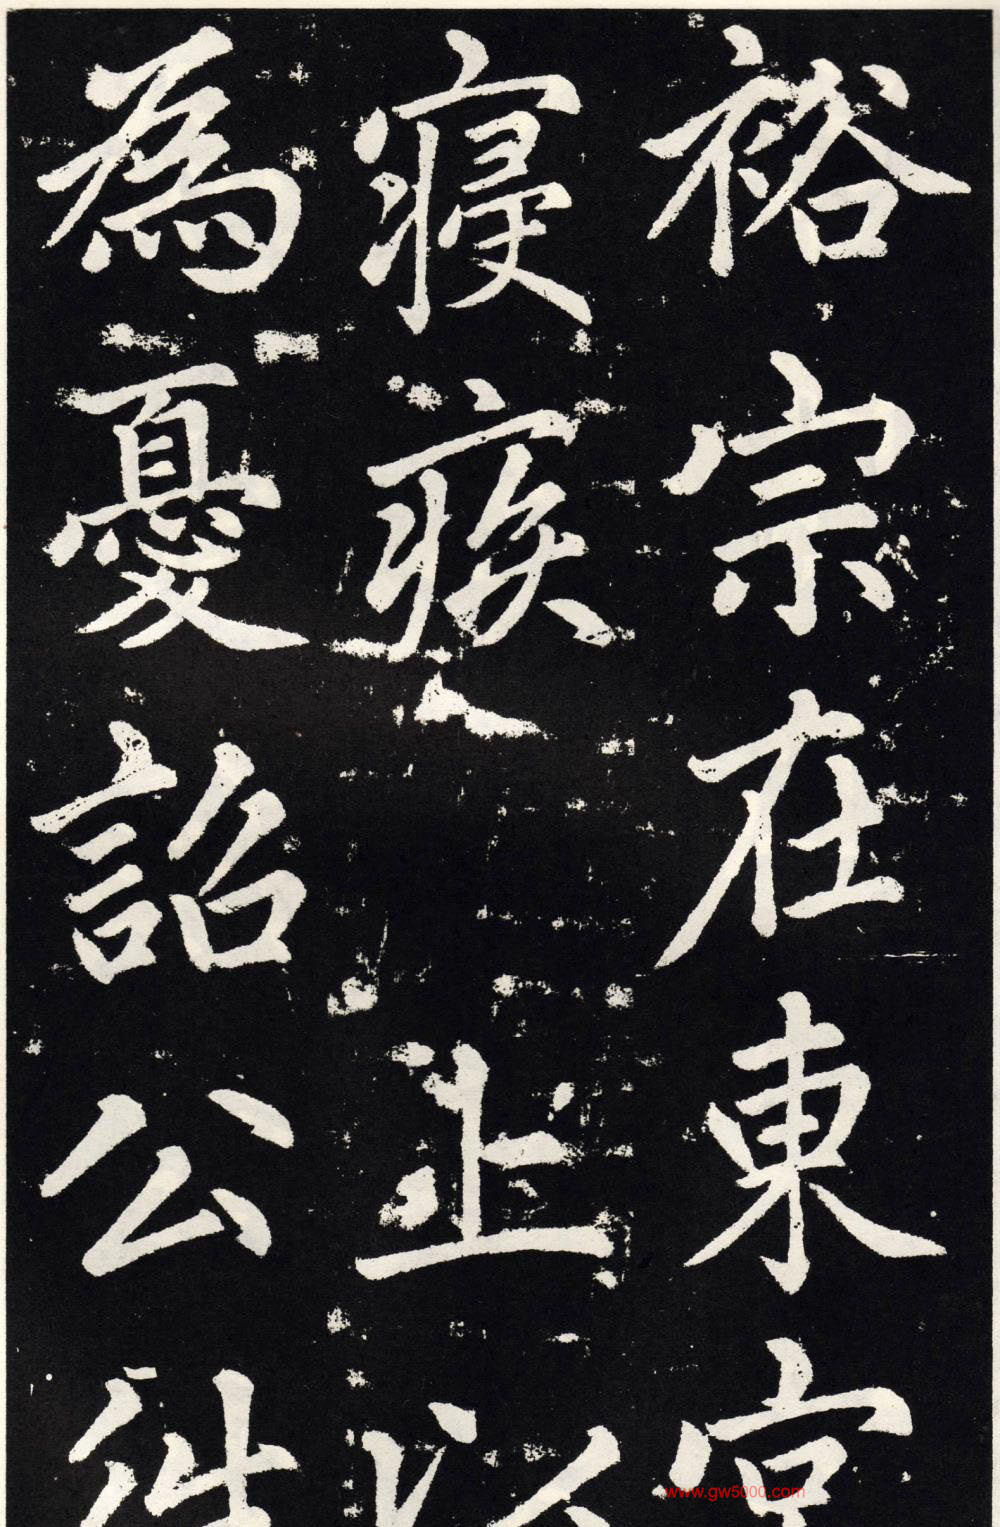 裕宗在東宮
寢疾上以
為憂詔公
www.gw5000.com